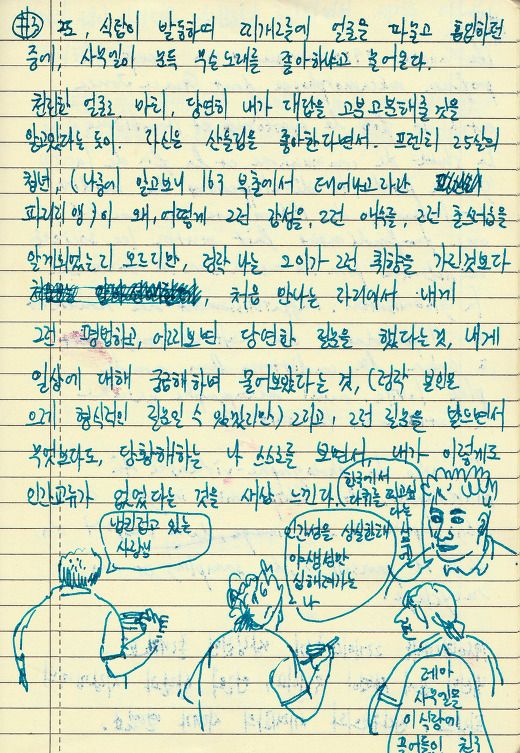 #3 또, 식탐이 발동하여 피자그릇에 얼굴을 파뭍고 흡입하던
중에, 사무엘이 문득 무슨노래를 좋아하냐고 물어온다.
찬란한 얼굴로 마치, 당연히 내가 대답을 고분고분해줄것을
알고있다는 듯이. 자신은 산울림을 좋아한다면서. 프렌치 25살의
청년, (나중에 알고보니 163 부촌에서 태어나고자란
파리지앵)이 왜, 어떻게 그런 감성을, 그런 애수를, 그런 촌스러움을
알게되었는지 모르지만, 정작 나는 그이가 그런 취향을 가진것보다
, 처음 만나는 자리에서 내게
그런 평범하고, 어찌보면 당연한 질문을 했다는것, 내게
일상에 대해 궁금해하며 물어보았다는 것, (정작 본인은
으레 형식적인 질문일 수 있겠지만) 그리고, 그런 질문을 받으면서
무엇보다도, 당황해하는 나 스스로를 보면서, 내가 이렇게도
인간교류가 없었다는 것을 새삼 느낀다.
한국에서
다큐를 찍고싶
다는
사무엘
있는
사람들
인간성을 상실한채
야생성만
심해져가는
나
레아
사무엘
이 식당에
친구